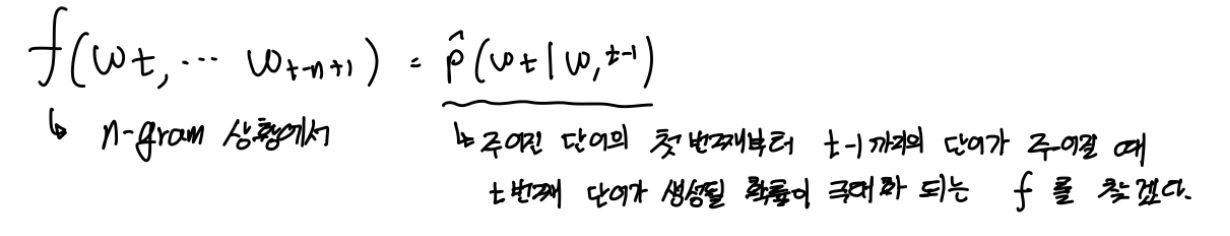 f(wt, ... wt-n+1) = p̂(wt | w,^t-1)
↳ n-gram 상황에서
↳ 주어진 단어의 첫 번째부터 t-1 까지의 단어가 주어질 때
t번째 단어가 생성될 확률이 극대화 되는 f 를 찾겠다.